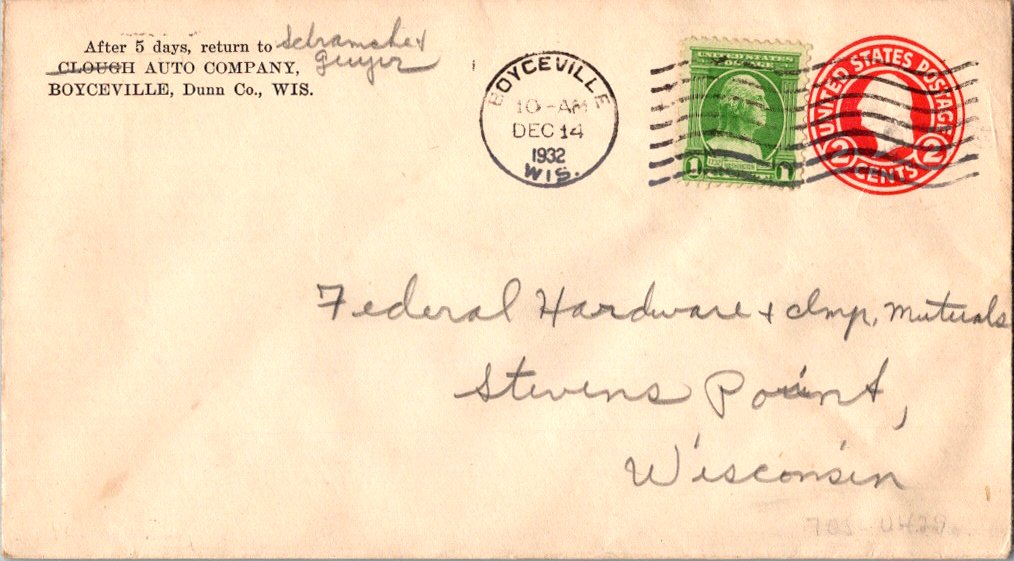 After 5 days, return to Schramche &
Geuyer
CLOUGH AUTO COMPANY,
BOYCEVILLE, Dunn Co., WIS.
BOYCEVILLE
10-AM
DEC 14
1932
WIS.
UNITED STATES
POSTAGE
1 1
UNITED STATES POSTAGE
2 CENTS 2
Federal Hardware & Imp. Mutuals
Stevens Point,
Wisconsin